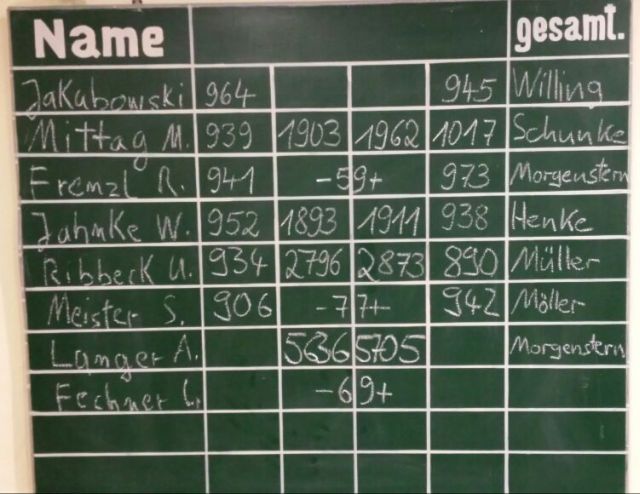 Name gesamt.
Jakubowski 964 945 Willing
Mittag M. 939 1903 1962 1017 Schunke
Frenzl R. 941 -59+ 973 Morgenstern
Jahnke W. 952 1893 1911 938 Henke
Ribbeck U. 934 2796 2873 890 Müller
Meister S. 906 -77+ 942 Möller
Langer A. 5636 5705 Morgenstern
Fechner L. -69+